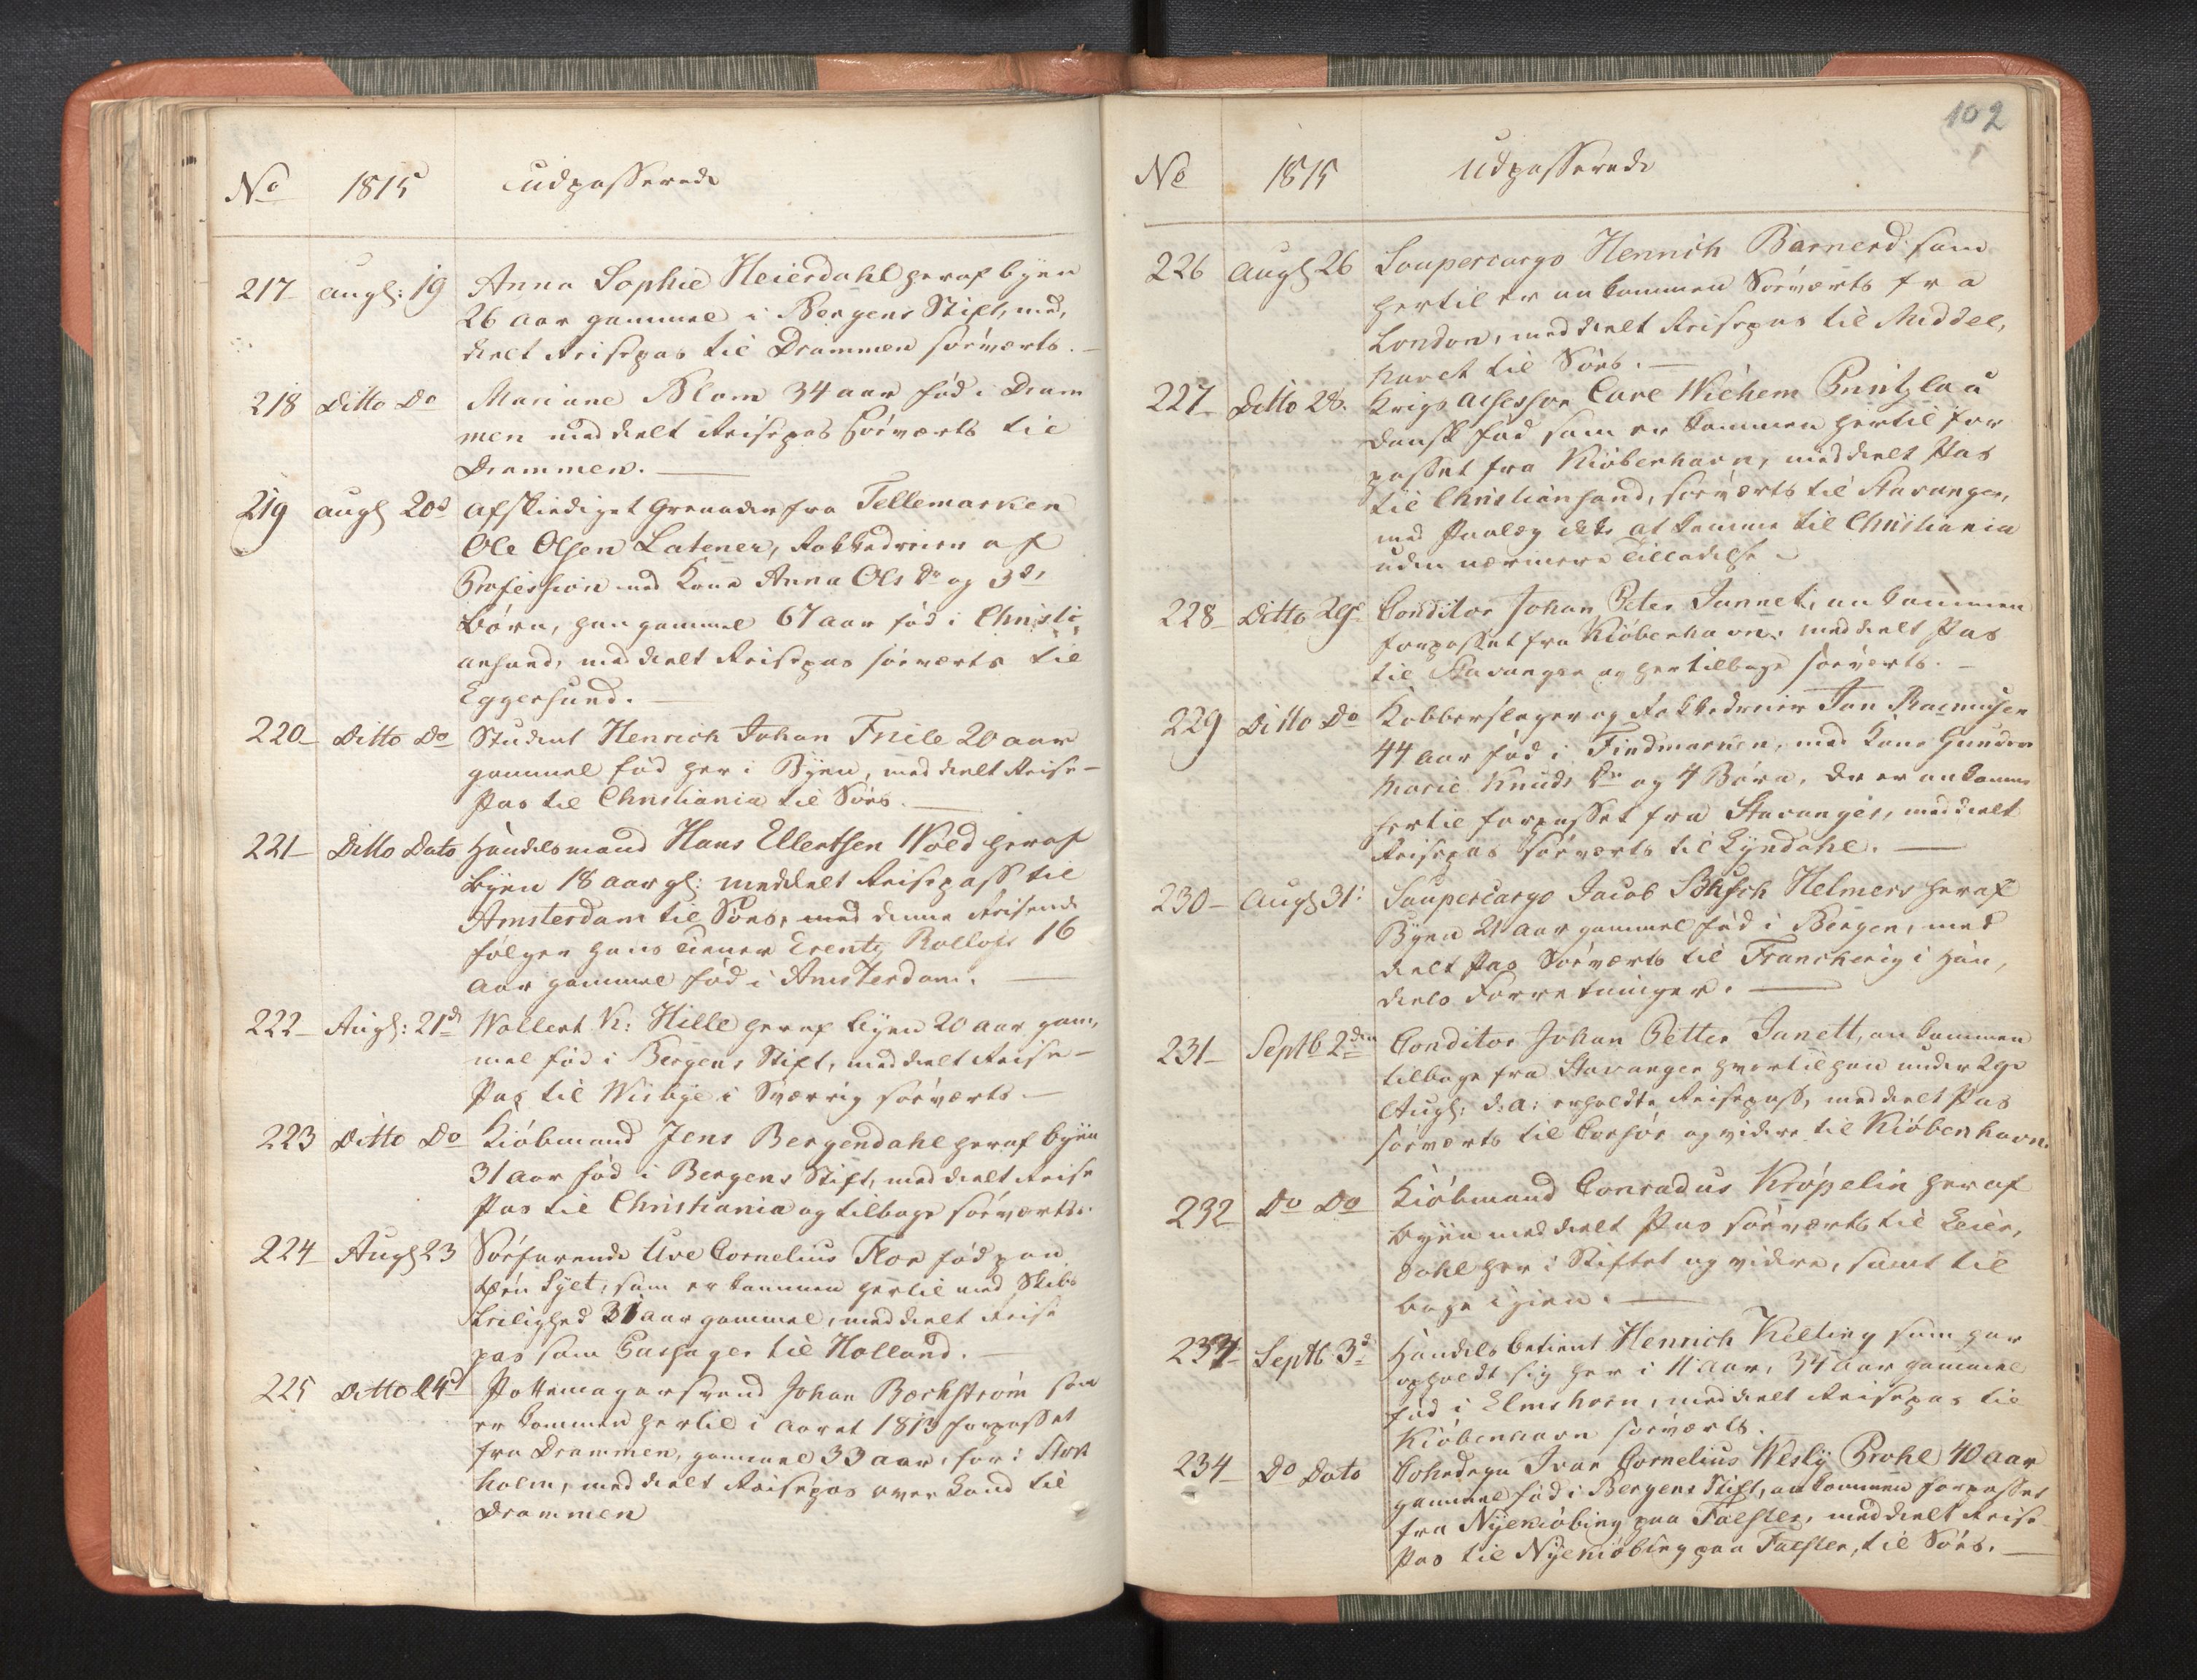 No 1815 udpasserede
217 Augl: 19 Anna Sophie Heierdahl heraf byen
26 aar gammel i Bergens Stift, med,
delt Reisepas til Drammen søeværts. —
218 Ditto Do Mariane Blom 34 aar fød i Dram
men meddelt Reisepas søeværts til
Drammen. —
219 Augl 20d Afskediget Grenader fra Tellemarken
Ole Olsen Latener, Rokkedreier af
Profession med Kone Anna Ols Dr og 3de
Børn, han gammel 67 aar fød i Christi
ansand, meddelt Reisepas søeværts til
Eggersund. —
220 Ditto Do Student Henrich Johan Friele 20 aar
gammel fød her i Byen, meddelt Reise-
Pas til Christiania til Søes. —
221 Ditto Dato Handelsmand Hans Ellertsen Wold heraf
byen 18 aar gl: meddelt Reisepass til
Amsterdam til Søes, med denne Reisende
følger hans Tiener Erentz Rollofs 16
aar gammel fød i Amsterdam. —
222 Augl: 21d Wollert K: Hille heraf byen 20 aar gam,
mel fød i Bergens Stift, meddelt Reise-
Pas til Wisbye i Sverrig søeværts —
223 Ditto Do Kiøbmand Jens Bergendahl heraf byen
31 aar fød i Bergens Stift, meddelt Reise
Pas til Christiania og tilbage søeværts.
224 Augl 23 Søefarende Uve Cornelius Flor fød paa
Øen Sylt, som er kommen hertil med Skibs
Leilighed 31 aar gammel, meddelt Reise
pas som Passager til Holland. —
225 Ditto 24d Pottemagersvend Johan Bochstrøm som
er kommen hertil i Aaret 1813 forpasset
fra Drammen, gammel 33 aar, før i Stok
holm, meddelt Reisepas over Land til
Drammen
102
No 1815 Udpasserede
226 Augl 26 Soupercargo Hennich Barnerd som
hertil er ankommen Søeværts fra
London, meddelt Reisepas til Middel,
havet til Søes. —
227 Ditto 28. Krigs Assessor Carl Wichem Pnitzlau
Dansk fød som er kommen hertil for
passet fra Kiøbenhavn, meddelt Pas
til Christiansand, søeværts til Stavanger,
med Paalæg ikke at komme til Christiania
uden nærmere Tilladelse —
228 Ditto 29 Conditor Johan Peter Jannet, ankommen
forpasset fra Kiøbenhavn. meddelt Pas
til Stavanger og hertilbage søeværts. —
229 Ditto Do Kobberslager og Rokkedreier Jan Rasmusen
44 aar fød i Findmarken, med Kone Gunder
Marie Knuds Dr og 4 Børn, der er ankomne
hertil forpasset fra Stavanger, meddelt
Reisepas søeværts til Lyndahl. —
230 Augl 31: Soupercargo Jacob Busch Helmers heraf
Byen 21 aar gammel fød i Bergen, med
delt Pas Søeværts til Franckerig i Han,
dels Forretninger. —
231 Septb 2den Conditor Johan Petter Janett, ankommen
tilbage fra Stavanger hvortil han under 29
Augl: d: a: erholdte Reisepass, meddelt Pas
søeværts til Corsøer og videre til Kiøbenhavn.
232 Do Do Kiøbmand Conradus Krøpelin heraf
byen meddelt Pas søeværts til Leier,
dahl her i Stiftet og videre, samt til
bage igien. —
233 Septb 3d Handelsbetient Henrich Kelting som har
opholdt sig her i 11 aar, 34 aar gammel
fød i Elmshorn, meddelt Reisepas til
Kiøbenhavn søeværts.
234 Do Dato Toldegn Ivar Cornelius Wesly Krohl 40 aar
gammel fød i Bergens Stift, ankommen forpasset
fra Nyekiøbing paa Falster, meddelt Reise
Pas til Nyekiøbing paa Falster, til Søes. —